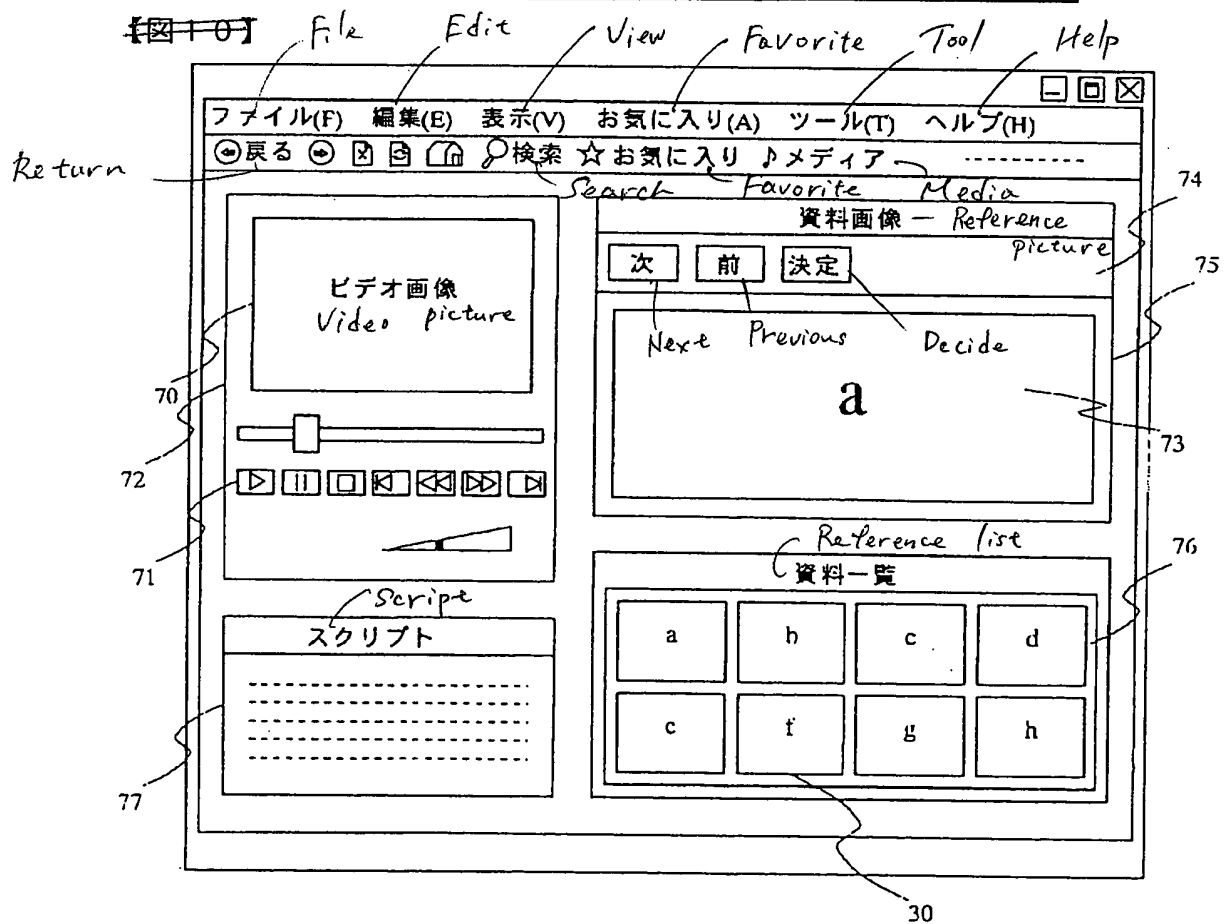 【図10】
File Edit View Favorite Tool Help
ファイル(F) 編集(E) 表示(V) お気に入り(A) ツール(T) ヘルプ(H)
戻る 検索 ☆お気に入り ♪メディア
Return Search Favorite Media
74
資料画像 — Reference picture
75
次 前 決定
Next Previous Decide
ビデオ画像
Video picture
a
70
73
72
71
Reference list
資料一覧
76
a h c d
c f g h
Script
スクリプト
77
30